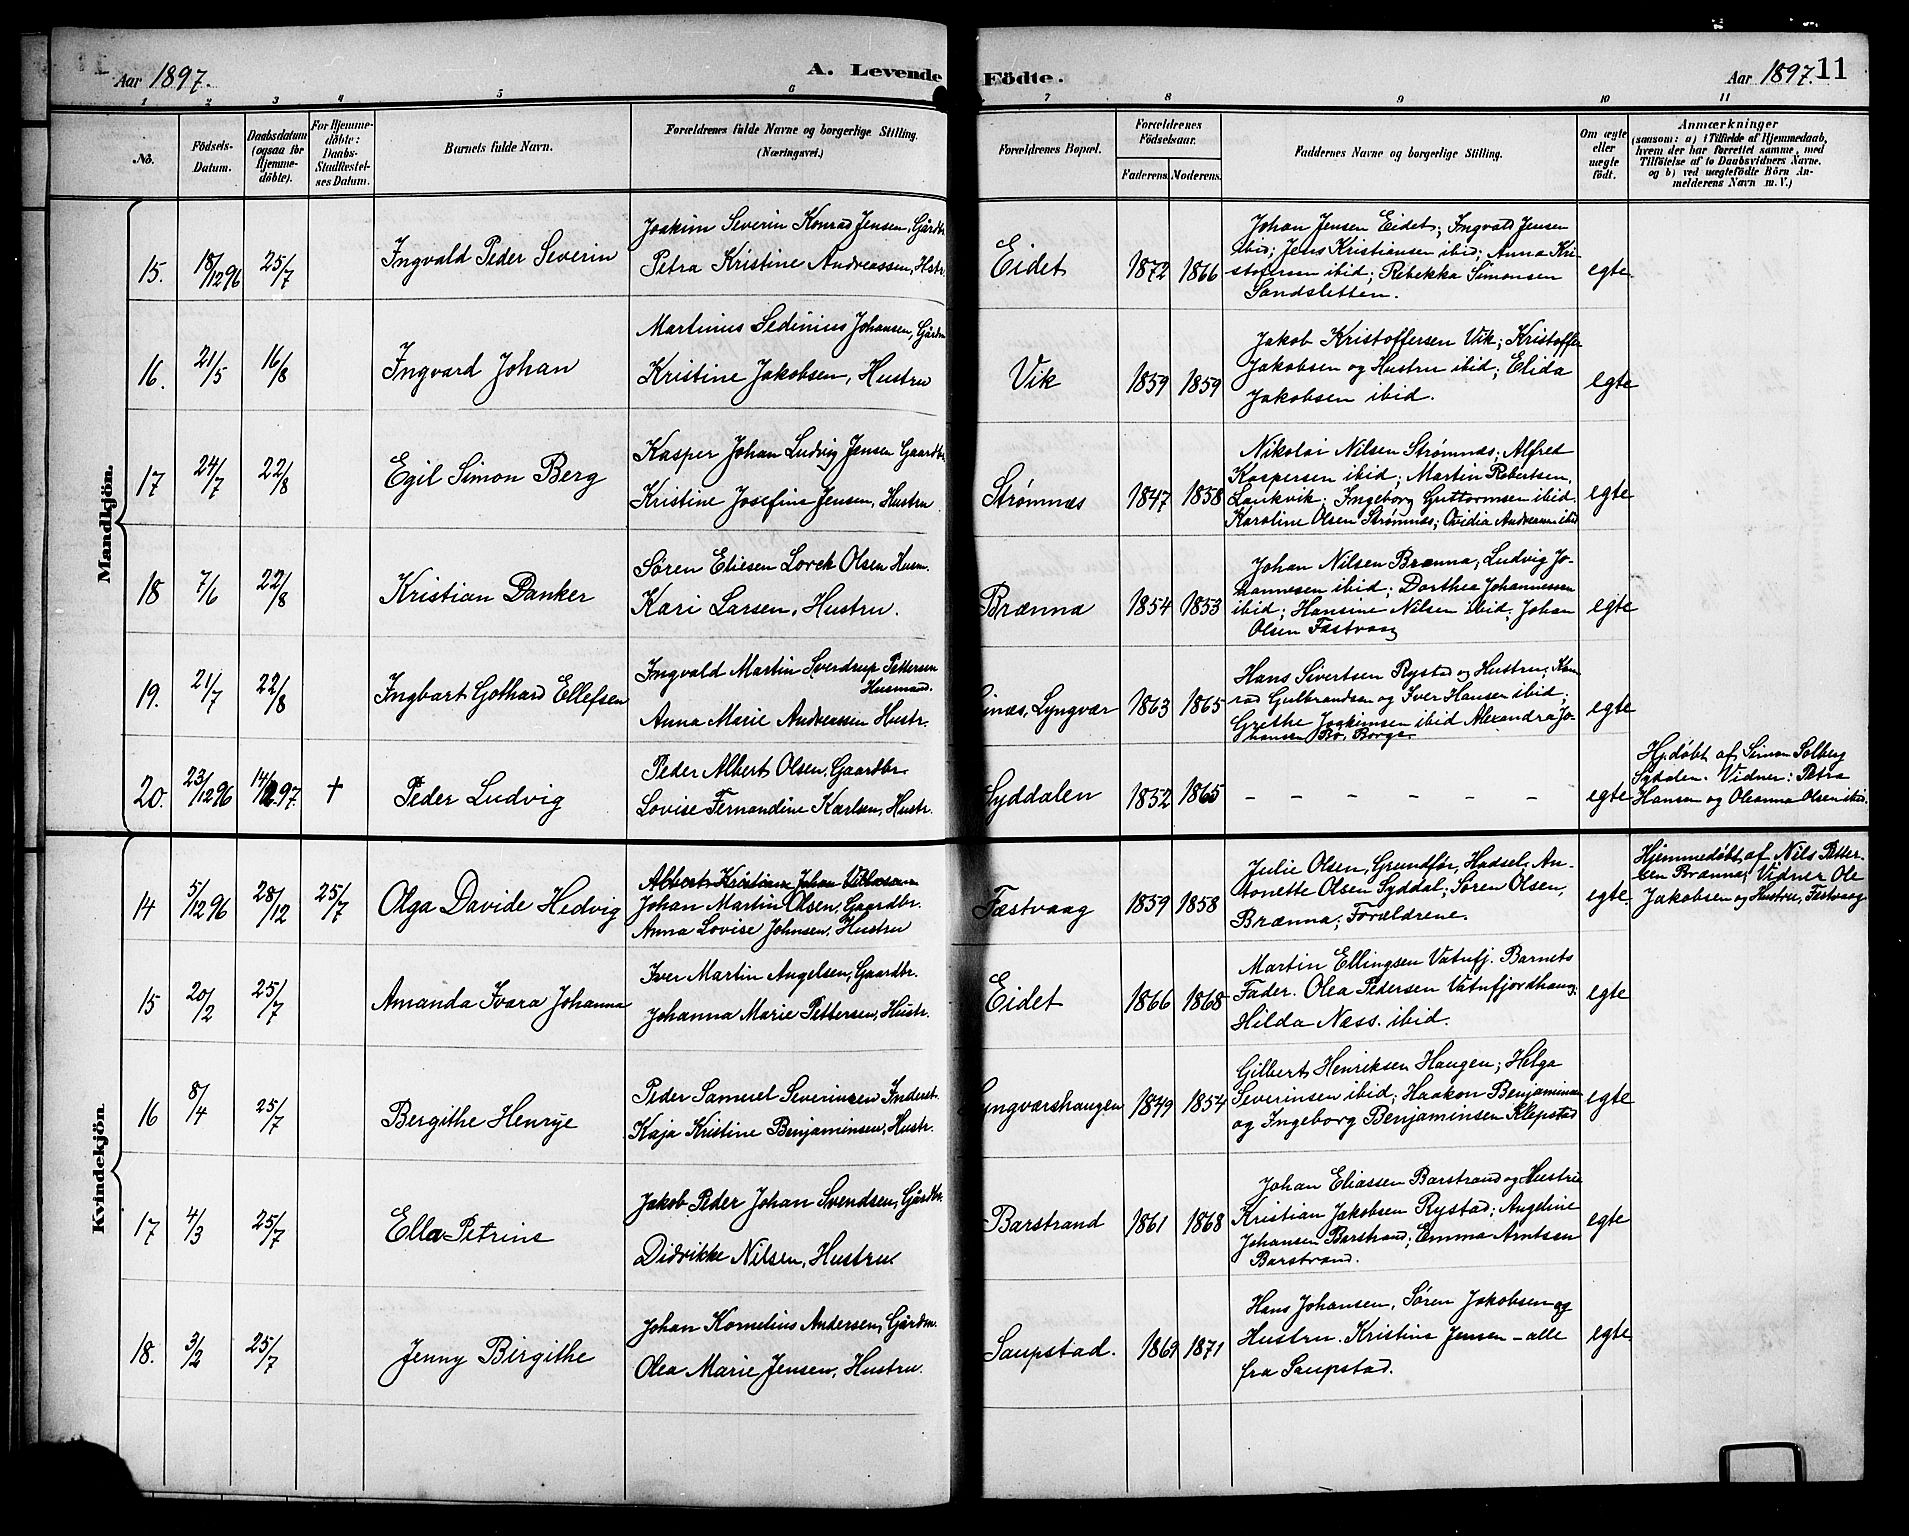 Aar 1897. A. Levende Födte. Aar 1897. 11
1 2 3 4 5 6 7 8 9 10 11
No.
Födsels-
Datum.
Daabsdatum
(ogsaa for
Hjemme-
döbte).
For Hjemme-
döbte:
Daabs-
Stadfæstel-
ses Datum.
Barnets fulde Navn.
Forældrenes fulde Navne og borgerlige Stilling.
(Næringsvei.)
Forældrenes Bopæl.
Forældrenes
Födselsaar.
Faderens. Moderens.
Faddernes Navne og borgerlige Stilling.
Om ægte
eller
uægte
födt.
Anmærkninger
(saasom: a) i Tilfælde af Hjemmedaab,
hvem der har forrettet samme, med
Tilföielse af to Daabsvidners Navne,
og b) ved uægtefödte Börn An-
melderens Navn m. V.)
Mandkjön.
15. 18/12 96 25/7 Ingvald Peder Severin
Joakim Severin Konrad Jensen, Gårdbr.
Petra Kristine Andreassen, Hstr.
Eidet 1872 1866
Johan Jensen Eidet; Ingvald Jensen
ibid; Jens Kristiansen ibid; Anna Kri-
stofersen ibid; Rebekka Simonsen
Sandsletten.
egte
16. 21/5 16/8 Ingvard Johan
Martinus Sedinius Johansen, Gårdm.
Kristine Jakobsen, Hustru
Vik 1859 1859
Jakob Kristoffersen Vik; Kristoffer
Jakobsen og Hustru ibid; Elida
Jakobsen ibid.
egte
17 24/7 22/8 Egil Simon Berg
Kasper Johan Ludvig Jensen Gaardbr.
Kristine Josefine Jensen, Hustru
Strømnæs 1847 1858
Nikolai Nilsen Strømnæs; Alfred
Kaspersen ibid; Martin Robertsen,
Laukvik; Ingeborg Guttormsen ibid.
Karoline Olsen Strømnæs; Ovidia Andreasen ibid
egte
18 7/6 22/8 Kristian Danker
Søren Eliesen Lorck Olsen Husm.
Kari Larsen, Hustru.
Brænna 1854 1853
Johan Nilsen Brænna, Ludvig Jo-
hannesen ibid; Dorthea Johannessen
ibid; Hansine Nilsen ibid; Johan
Olsen Fæstvaag
egte
19. 21/7 22/8 Ingbart Gothard Ellefsen
Ingvald Martin Sverdrup Pettersen
Husmand.
Anna Marie Andreassen Hustr.
Lyngvær 1863 1865
Hans Sivertsen Rystad og Hustru, Kon-
rad Gulbrandsen og Iver Hansen ibid;
Grethe Joakimsen ibid Alexandra Jo-
hansen
egte
20. 23/12 96 97 + Peder Ludvig
Peder Albert Olsen, Gaardbr.
Lovise Fernandine Karlsen, Hustr.
Syddalen 1852 1865
– – – – – –
egte
Hj.døbt af Simon Solberg
Sydalen. Vidner: Petra
Hansen og Oleanna Olsen ibid.
Kvindekjön.
14 5/12 96 28/12 25/7 Olga Davide Hedvig
Johan Martin Olsen, Gaardbr.
Anna Lovise Johnsen, Hustru
Fæstvaag 1859 1858
Julie Olsen, Grundfør, Hadsel, An-
tonette Olsen Syddal; Søren Olsen,
Brænna; Forældrene.
egte.
Hjemmedøbt af Nils Petter-
sen Brænna; Vidner Ole
Jakobsen og Hustru, Fæstvaag
15 20/2 25/7 Amanda Ivara Johanna
Iver Martin Angelsen, Gaardbr.
Johanna Marie Pettersen, Hustr.
Eidet 1866 1868
Martin Ellingsen Vatnfj. Barnets
Fader. Olea Pedersen Vatnfjordhaug;
Hilda Næss. ibid.
egte
16 8/4 25/7 Bergithe Henrye
Peder Samuel Severinsen Inderst.
Kaja Kristine Benjaminsen, Hustr.
Lyngværshaugen 1849 1854
Gilbert Henriksen Haugen; Helga
Severinsen ibid; Haakon Benjaminsen
og Ingeborg Benjaminsen Klepstad
egte
17 4/3 25/7 Ella Petrine
Jakob Peder Johan Svendsen, Gårdbr.
Didrikke Nilsen, Hustru.
Barstrand 1861 1868
Johan Eliassen Barstrand og Hustru
Kristian Jakobsen Rystad; Angeline
Johansen Barstrand; Emma Arntsen
Barstrand.
egte
18. 3/2 25/7 Jenny Birgithe
Johan Kornelius Andersen, Gårdm.
Olea Marie Jensen, Hustru.
Saupstad. 1869 1871
Hans Johansen, Søren Jakobsen og
Hustru. Kristine Jensen – alle
fra Saupstad.
egte